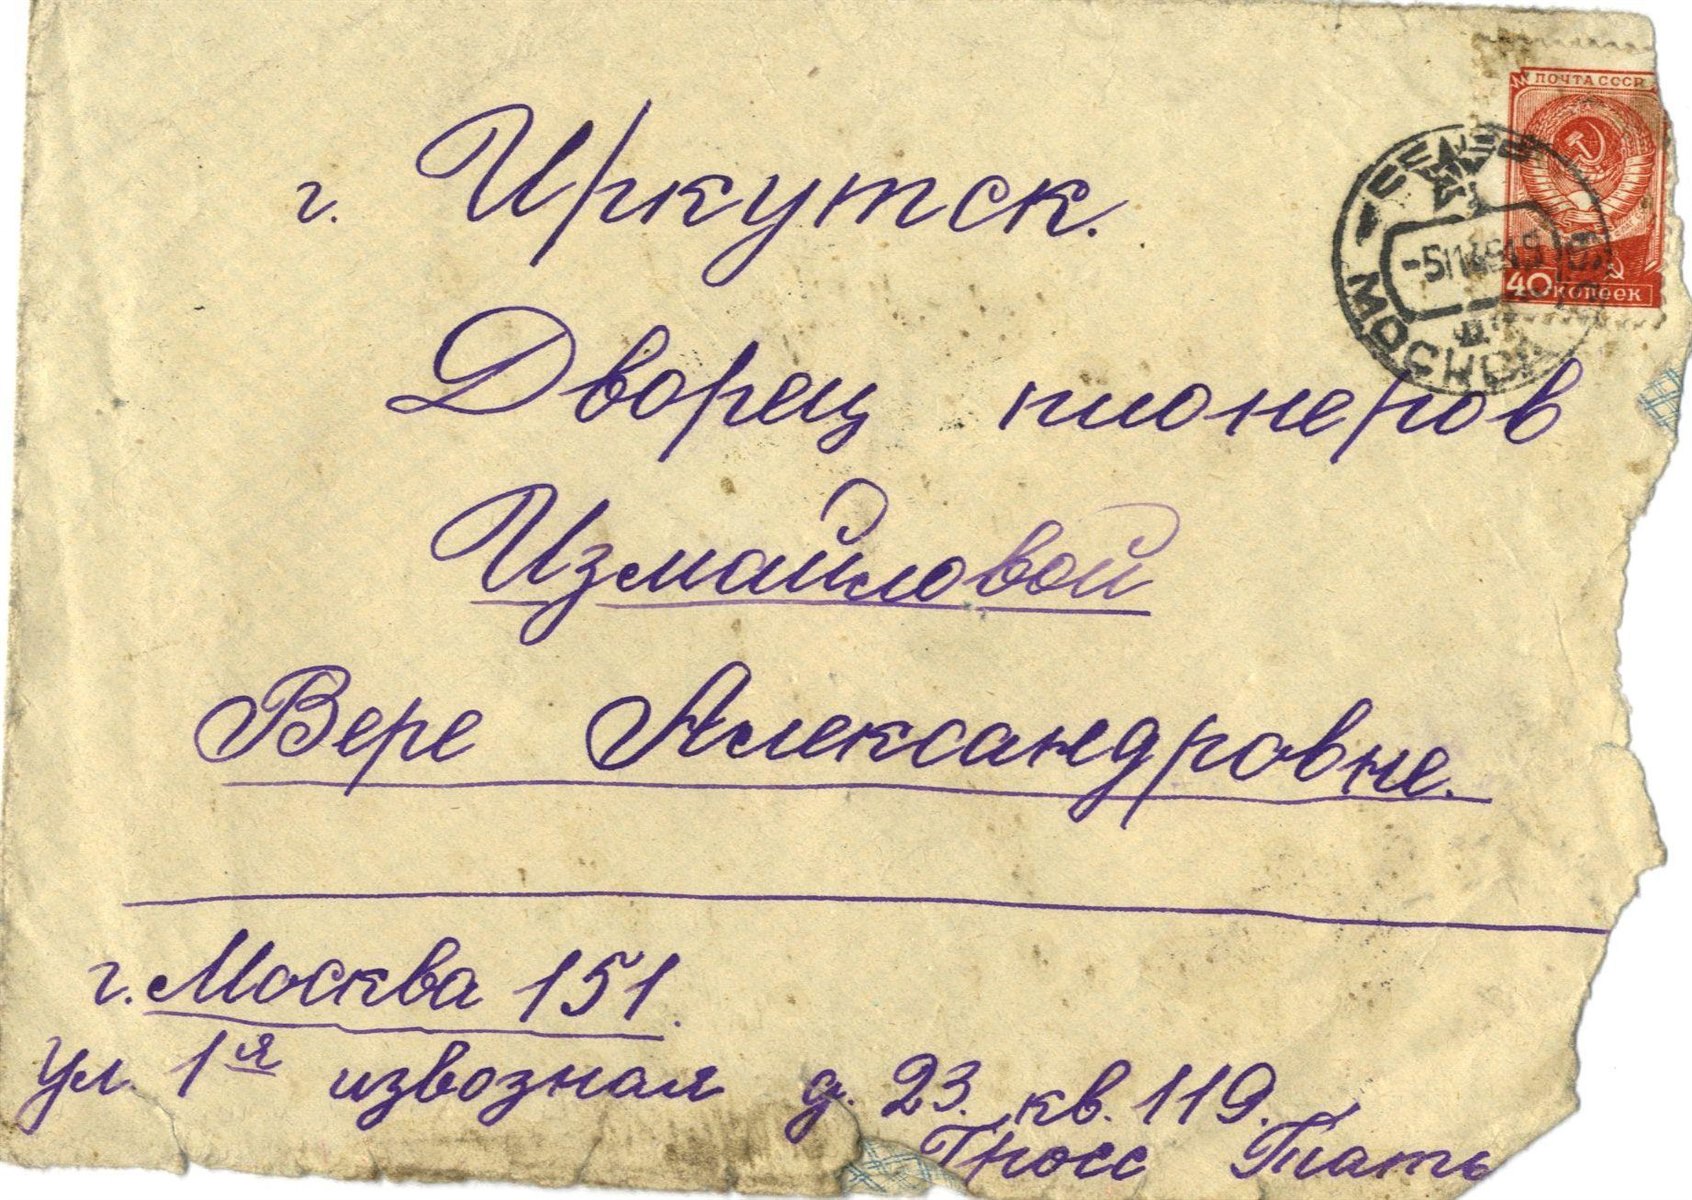 ПОЧТА СССР
40 КОПЕЕК
МОСКВА
г. Иркутск.
Дворец пионеров
Измайловой
Вере Александровне.
г. Москва 151.
ул. 1я извозная д. 23. кв. 119.
Гросс